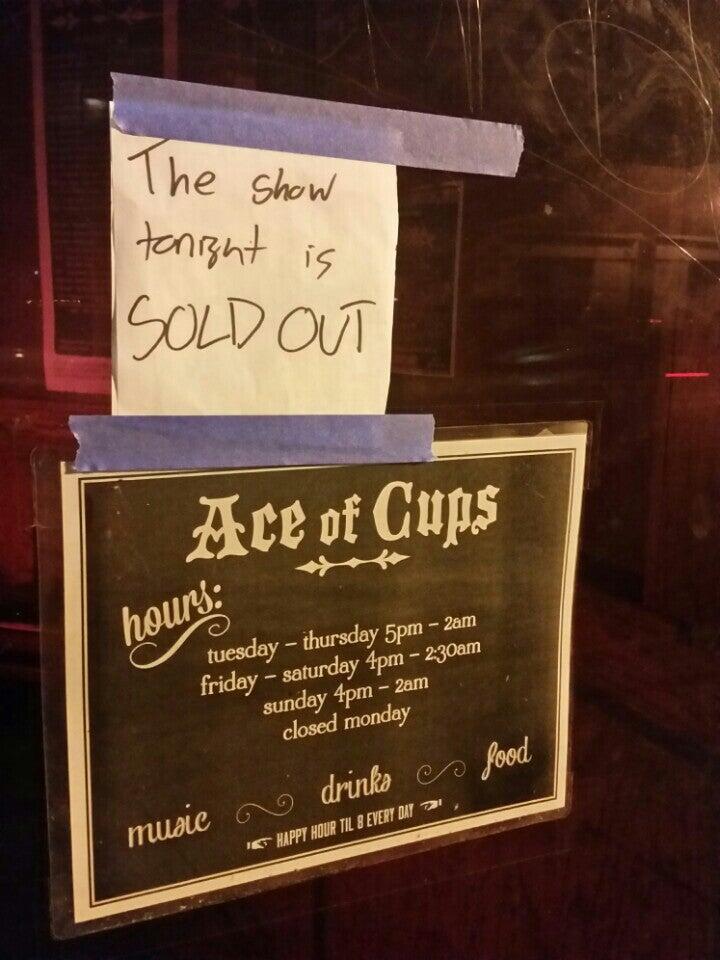 The show
tonight is
SOLD OUT
Ace of Cups
hours:
tuesday – thursday 5pm – 2am
friday – saturday 4pm – 2:30am
sunday 4pm – 2am
closed monday
music drinks food
HAPPY HOUR TIL 8 EVERY DAY